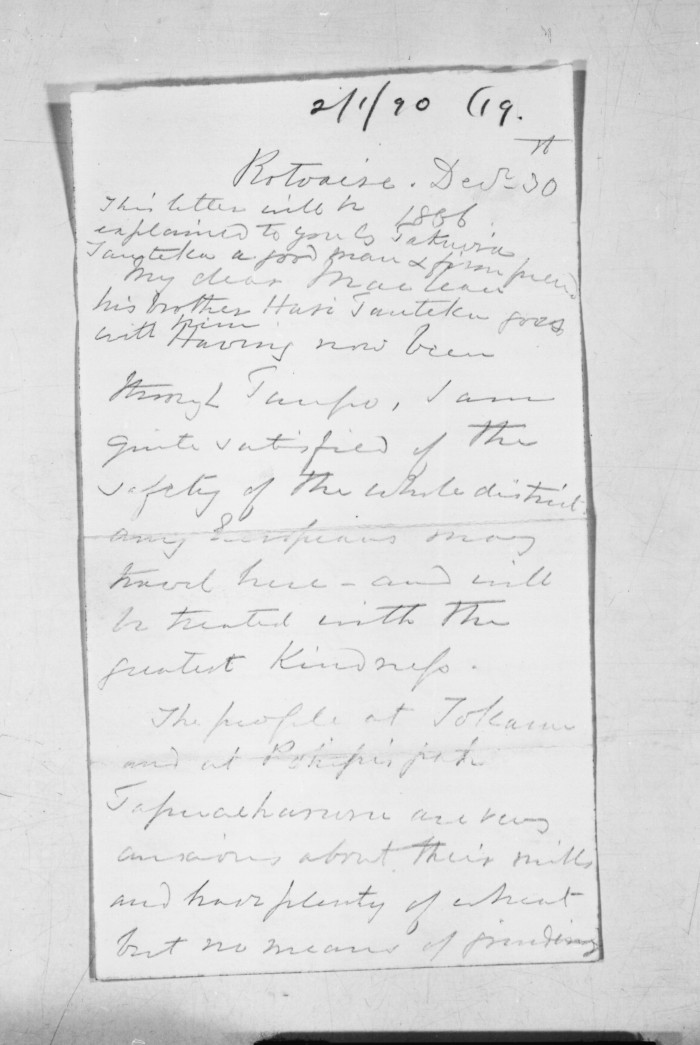 2/1/90 (19.
Rotoaira. Decr 30th
1866
This letter will be
explained to you by Takuira
Tauteka a good man & firm friend
his brother Hari Tauteka goes
with him
My dear Maclean
Having now been
through Taupo, I am
quite satisfied of the
safety of the whole district
any Europeans may
travel here - and will
be treated with the
greatest Kindness.
The people at Tokanu
and at Pohipi's pah
Tapuaeharuru are very
anxious about their mills
and have plenty of wheat
but no means of grinding